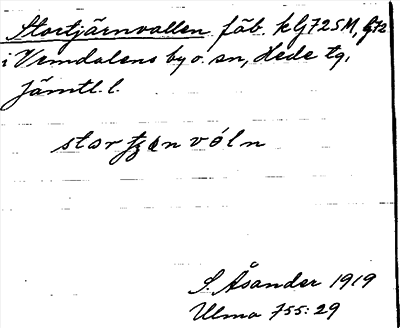 Stortjärnvallen fäb. k G72SM, G72
i Vemdalens by o. sn, Hede tg,
Jämtl. l.
stortjänvóln
S. Åsander 1919
Ulma 755:29